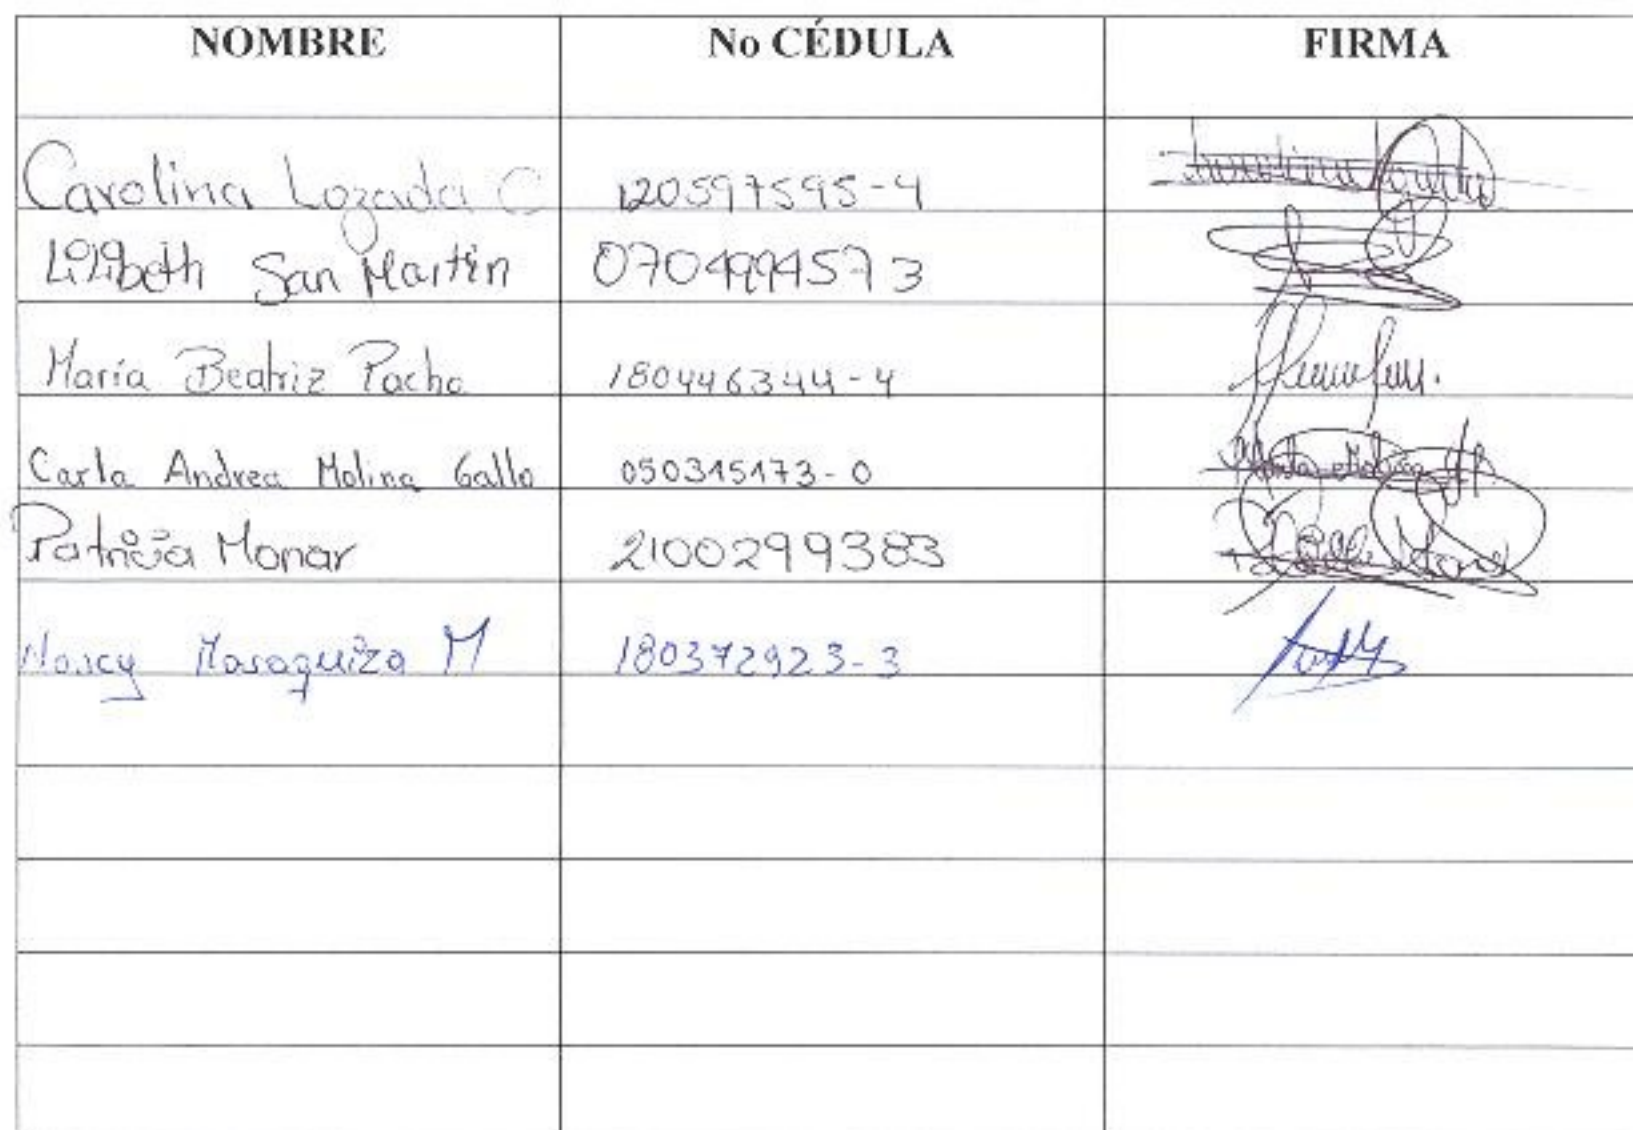 NOMBRE No CÉDULA FIRMA
Carolina Lozada C 120597595-4
Lilibeth San Martin 0704994573
María Beatriz Pacha 180446344-4
Carla Andrea Molina Gallo 050315173-0 Carla Molina
Patricia Monar 2100299383
Nancy Masaquiza M 180372923-3